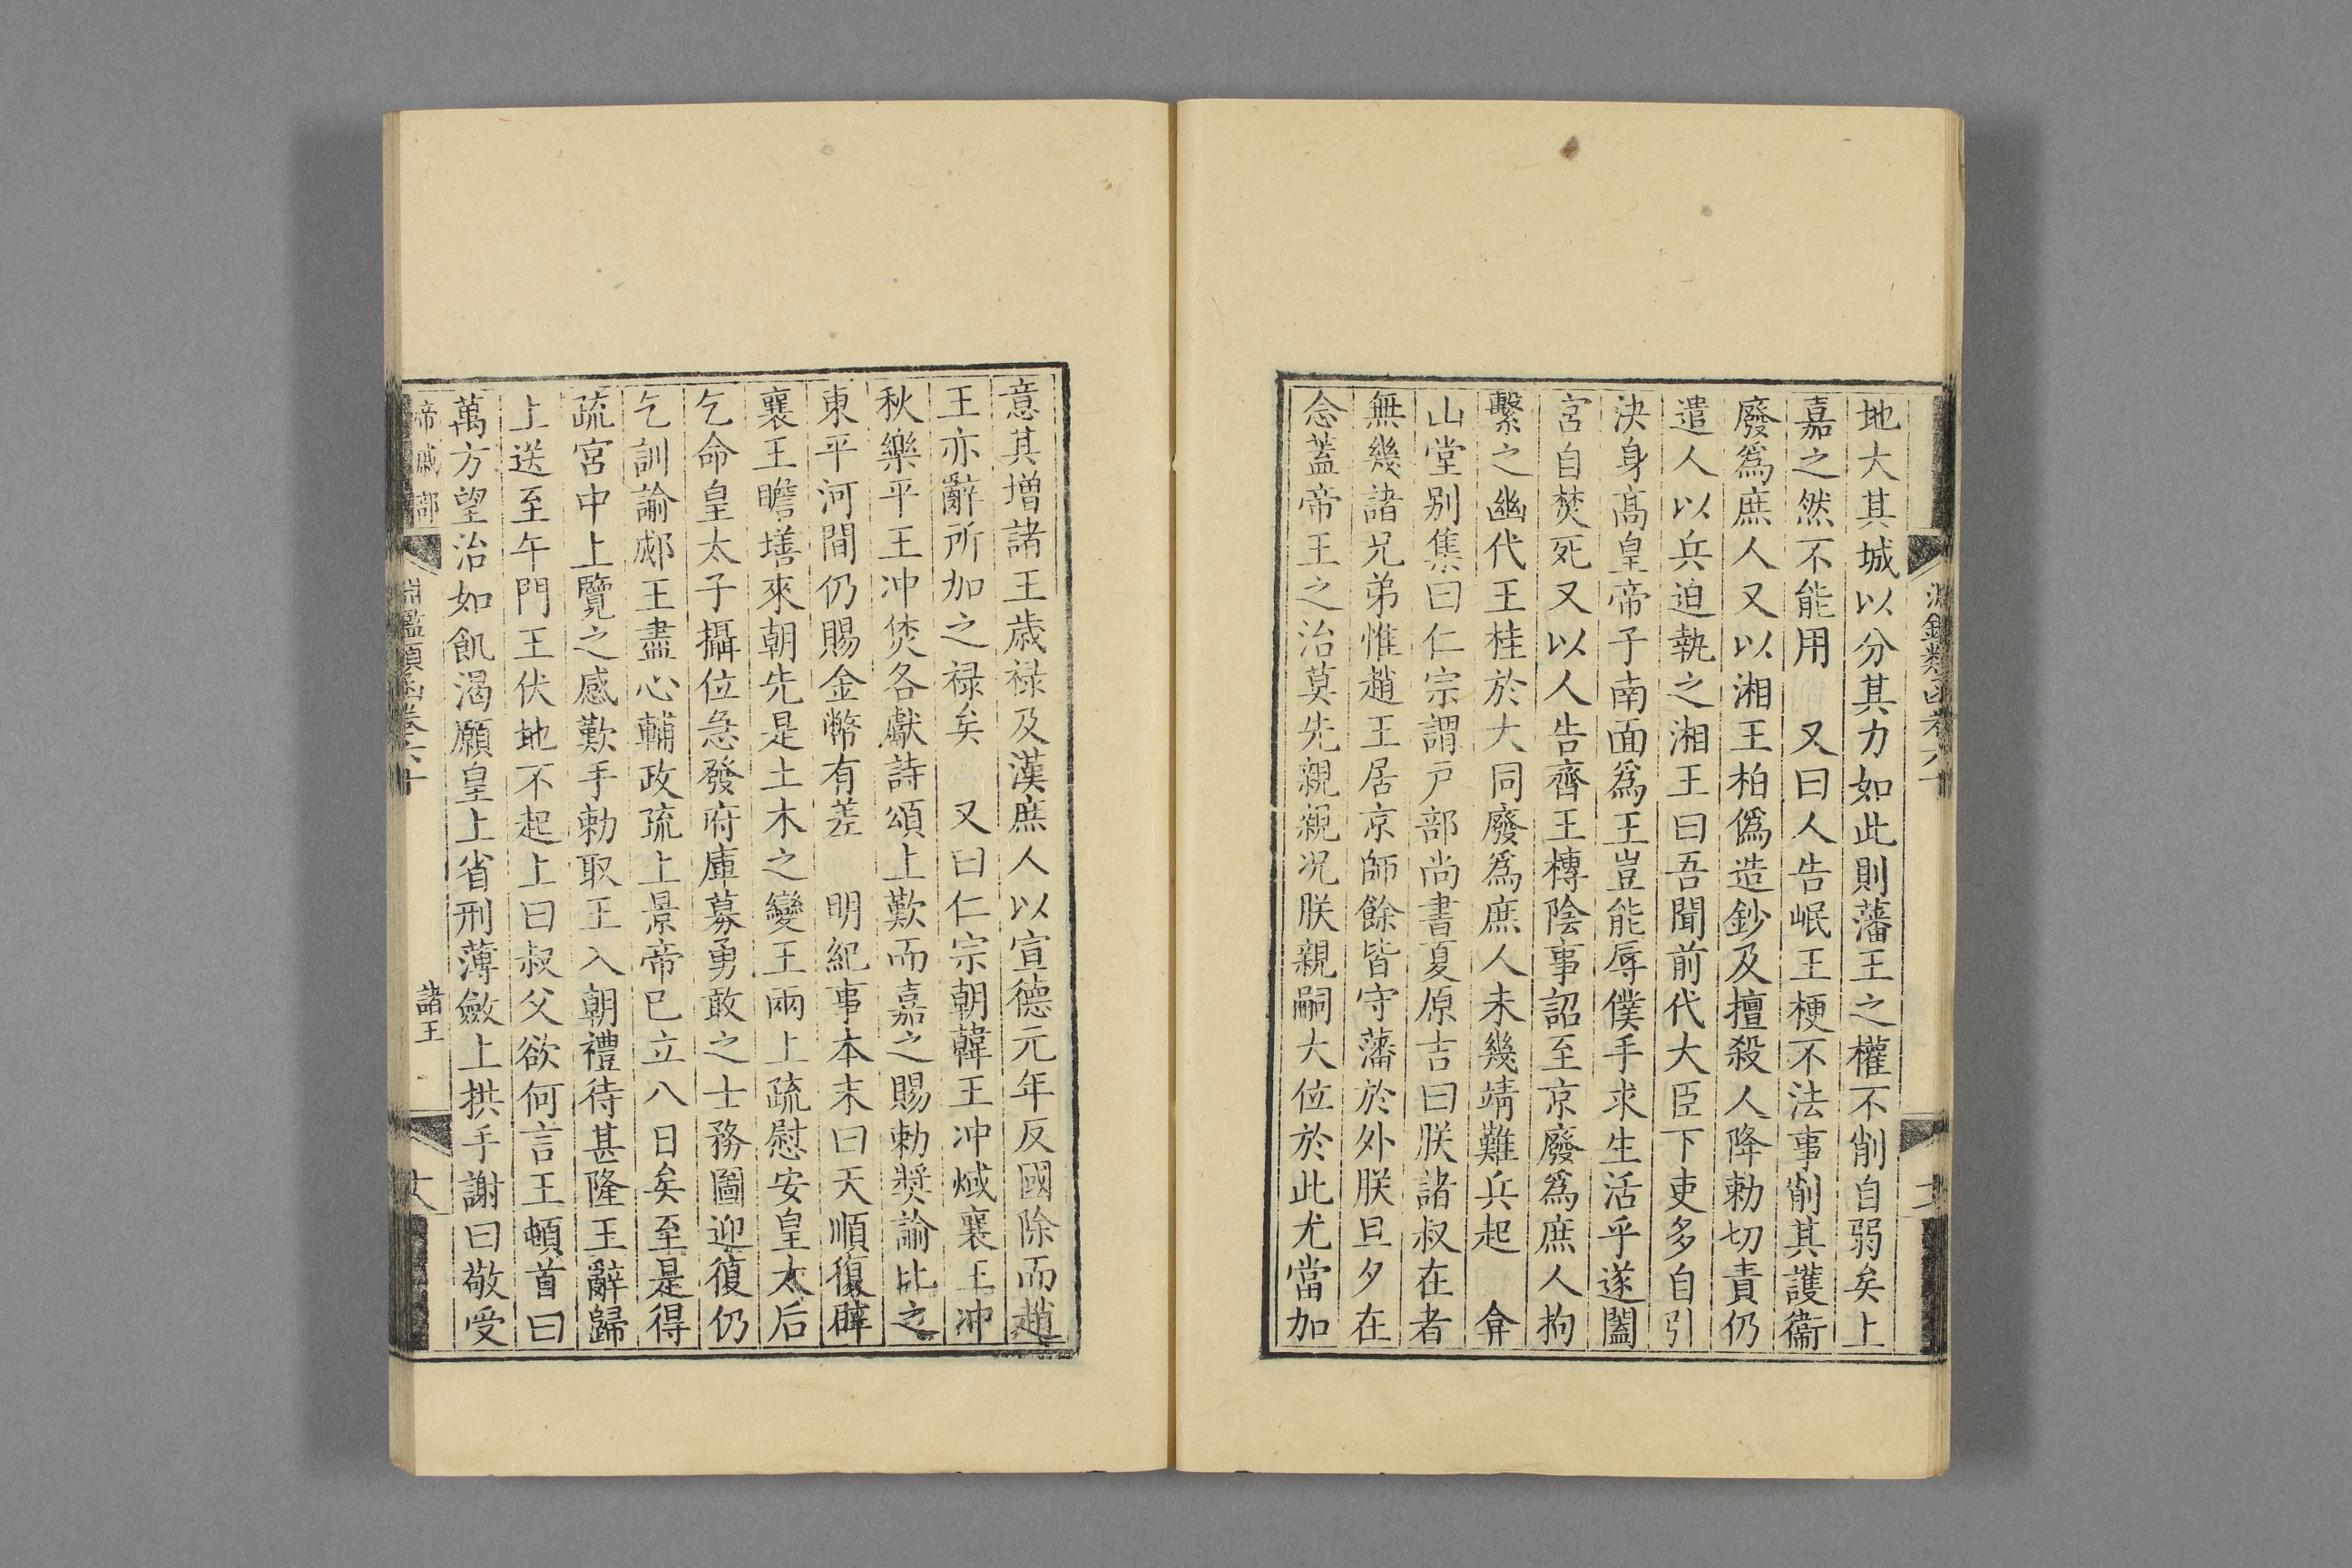 地大其城以分其力如此則藩王之權不削自弱矣上
嘉之然不能用　又曰人告岷王梗不法事削其護衞
廢爲庶人又以湘王柏僞造鈔及擅殺人降勅切責仍
遣人以兵迫執之湘王曰吾聞前代大臣下吏多自引
決身髙皇帝子南面爲王豈能辱僕手求生活乎遂闔
宮自焚死又以人告齊王榑陰事詔至京廢爲庶人拘
繫之幽代王桂於大同廢爲庶人未幾靖難兵起　弇
山堂别集曰仁宗謂戸部尚書夏原吉曰朕諸叔在者
無幾諸兄弟惟趙王居京師餘皆守藩於外朕旦夕在
念蓋帝王之治莫先親親况朕親嗣大位於此尤當加
意其增諸王歳禄及漢庶人以宣德元年反國除而趙
王亦辭所加之禄矣　又曰仁宗朝韓王冲𤊟襄王冲
秋樂平王冲烎各獻詩頌上歎而嘉之賜勅奬諭比之
東平河間仍賜金幣有差　明紀事本末曰天順復辟
襄王瞻墡來朝先是土木之變王兩上疏慰安皇太后
乞命皇太子攝位急發府庫募勇敢之士務圖迎復仍
乞訓諭郕王盡心輔政疏上景帝已立八日矣至是得
疏宮中上覽之感歎手勅取王入朝禮待甚隆王辭歸
上送至午門王伏地不起上曰叔父欲何言王頓首曰
萬方望治如飢渴願皇上省刑薄斂上拱手謝曰敬受
帝戚部
淵鑑類函卷六十
諸王